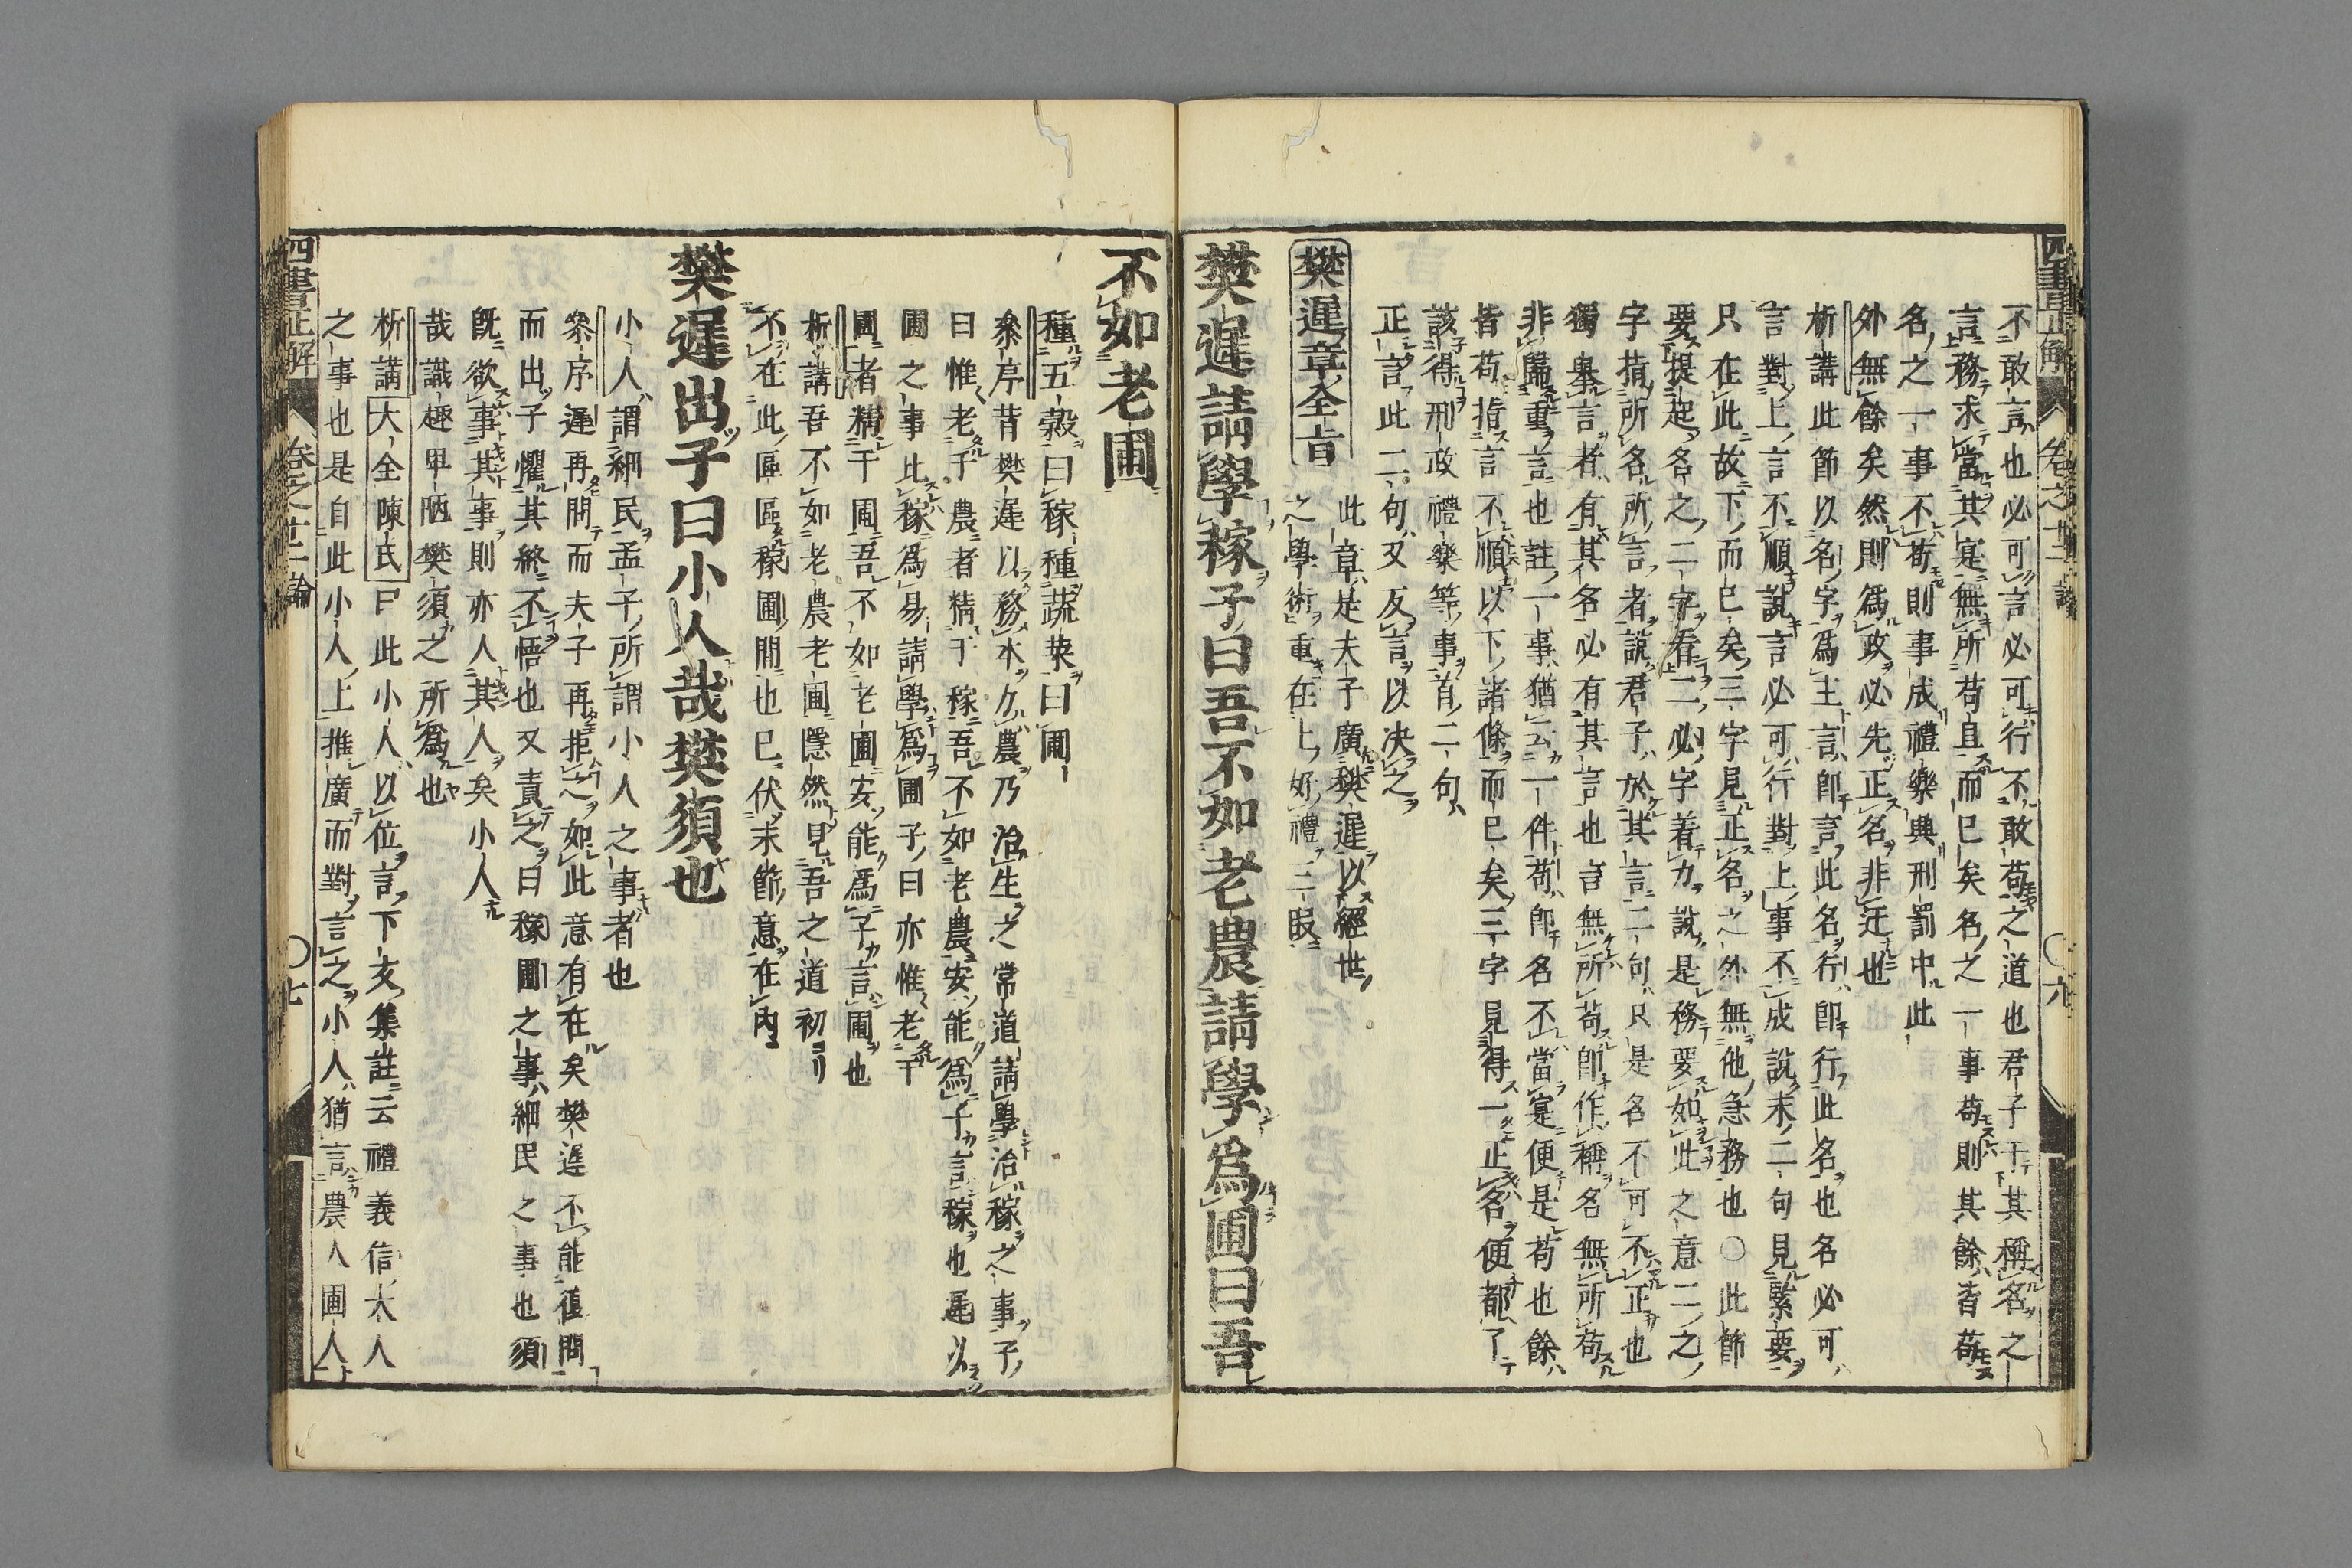 不敢言也必可言必可行不敢苟之道也君子于其稱名之
言務求當其寔無所苟且而已矣名之一事苟則其餘皆苟
名之一事不苟則事成禮樂興刑罰中此
外無餘矣然則為政必先正名非迂也
析講此節以名字為主言即言此名行即行此名也名必可
言對上言不順說言必可行對上事不成說末二句見緊要
只在此故下而已矣三字見正名之外無他急務也〇此節
要提起名之二字看二必字着力說是務要如此之意二之
字指所名所言者說君子於其言二句只是名不可不正也
獨舉言者有其名必有其言也言無所苟即作稱名無所苟
非歸重言也註一事猶云一件苟即名不當寔便是苟也餘
皆苟指言不順以下諸條而已矣三字見得一正名便都了
該得刑政禮樂等事首二句
正言此二句又反言以决之
此章是夫子廣樊遲以經世
樊遲章全旨
之學術重在上好禮三段
樊遲請學稼子曰吾不如老農請學為圃曰吾
不如老圃
種五穀曰稼種蔬菜曰圃
叅序昔樊遲以務本力農乃治生之常道請學治稼之事子
曰惟老于農者精于稼吾不如老農安能為子言稼也遲以
圃之事比稼為易請學為圃子曰亦惟老于
圃者精于圃吾不如老圃安能為子言圃也
析講吾不如老農老圃隱然見吾之道初
不在此區區稼圃間也已伏末節意在內
樊遲出子曰小人哉樊須也
小人謂細民孟子所謂小人之事者也
叅序遲再問而夫子再拒之如此意有在矣樊遲不能復問
而出子懼其終不悟也又責之曰稼圃之事細民之事也須
既欲事其事則亦人其人矣小人
哉識趣卑陋樊須之所為也
析講大全陳氏曰此小人以位言下文集註云禮義信大人
之事也是自此小人上推廣而對言之小人猶言農人圃人
四書正解 卷之十二 論 〇六
四書正解 卷之十二 論 〇七